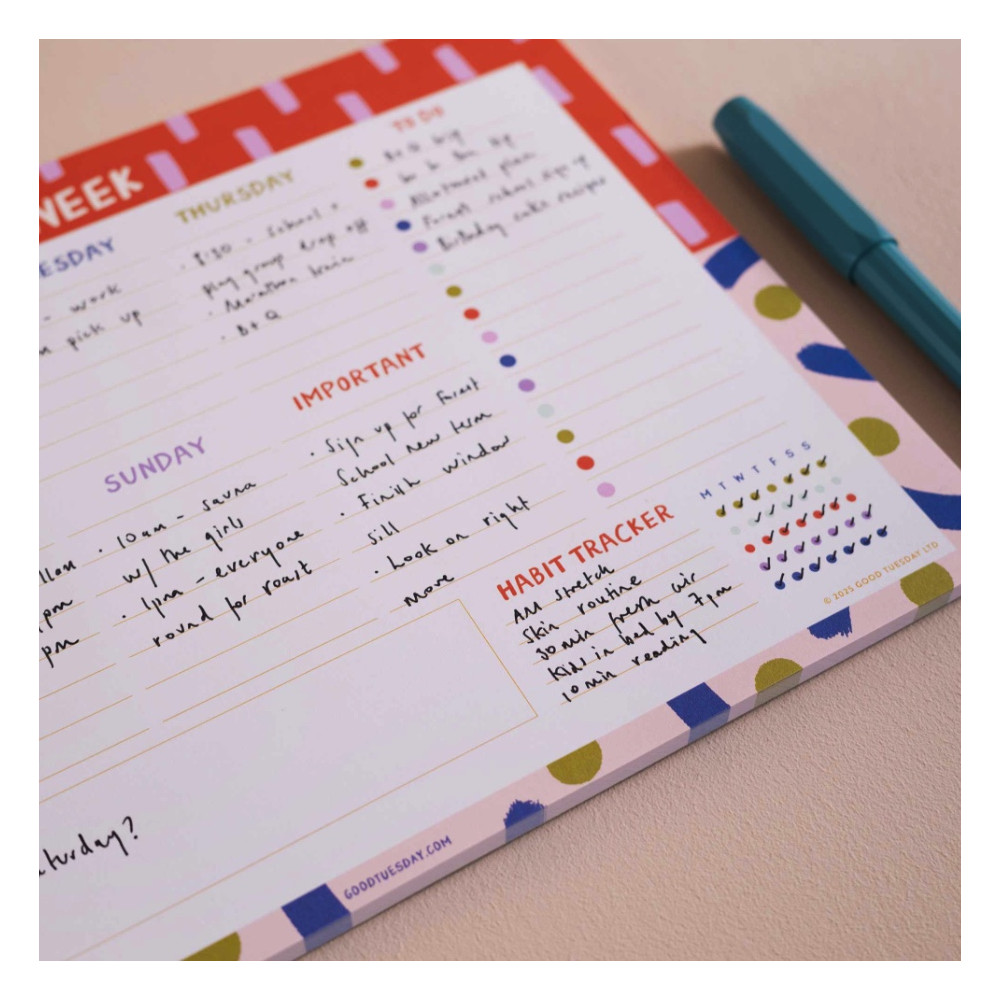 WEEK
ESDAY
- work
pick up
THURSDAY
· 8:30 - School +
play group drop off
· Marathon train
· B+Q
TO DO
B+Q big
Allotment plan
Forest school sign up
Birthday cake recipe
SUNDAY
· 10am - sauna
w/ the girls
· 1pm - everyone
round for roast
pm
pm
IMPORTANT
· Sign up for Forest
School new term
· Finish window
sill
· Look on right
move
HABIT TRACKER
AM stretch
Skin routine
30 min fresh air
Kids in bed by 7pm
10 min reading
M T W T F S S
© 2025 GOOD TUESDAY LTD
aturday?
GOODTUESDAY.COM